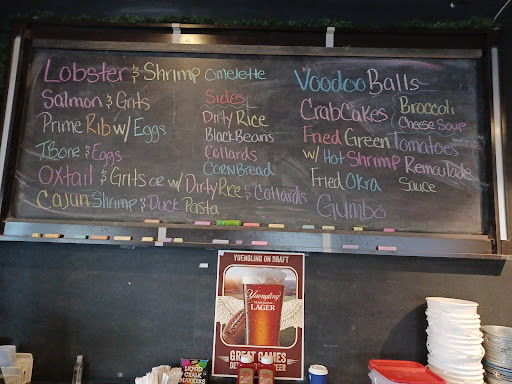 Lobster & Shrimp Omelette
Salmon & Grits
Prime Rib w/ Eggs
TBone & Eggs
Oxtail & Grits or w/ Dirty Rice & Collards
Cajun Shrimp & Duck Pasta
Sides
Dirty Rice
Black Beans
Collards
Corn Bread
Voodoo Balls
Crab Cakes
Broccoli
Cheese Soup
Fried Green Tomatoes
w/ Hot Shrimp Remoulade
Sauce
Fried Okra
Gumbo
YUENGLING ON DRAFT
Yuengling
LAGER
GREAT GAMES
LIQUID
CHALK
MARKERS